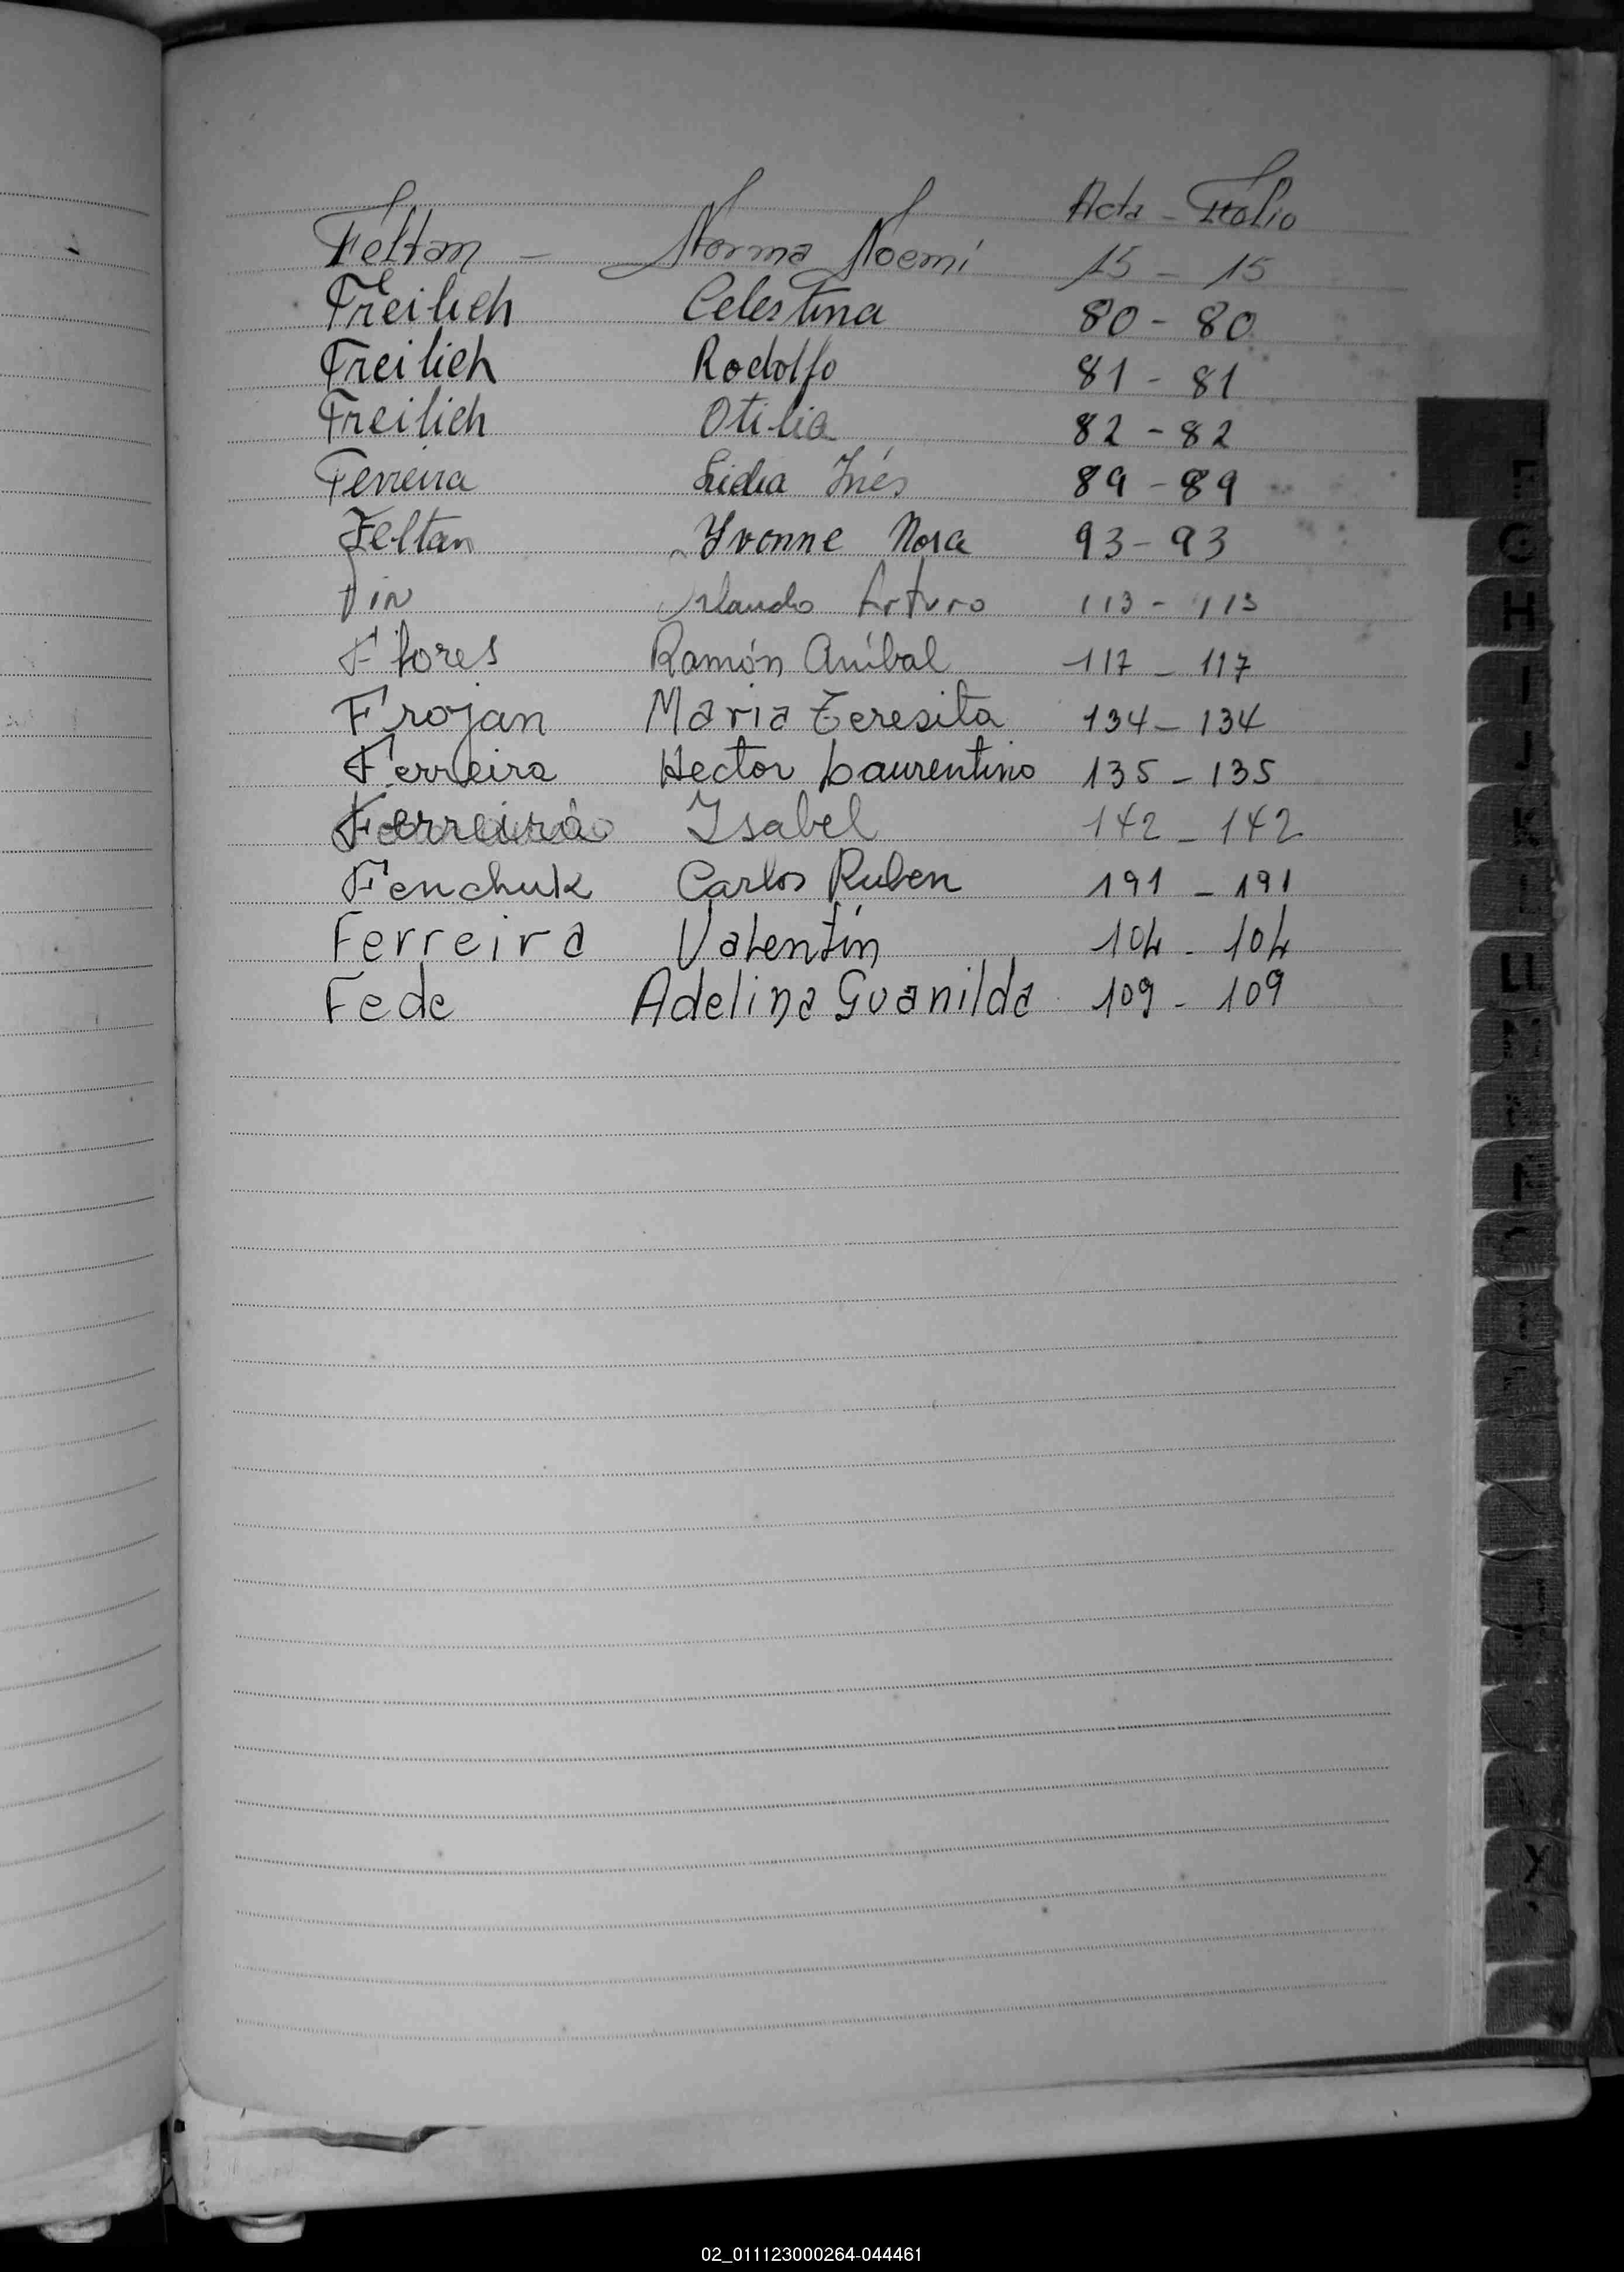 Acta - Folio
Feltan - Norma Noemi 15 - 15
Freilich Celestina 80 - 80
Freilich Rodolfo 81 - 81
Freilich Otilia 82 - 82
Ferreira Lidia Inés 89 - 89
Feltan Yvonne Nora 93 - 93
Fin Orlando Arturo 113 - 113
Flores Ramón Aníbal 117 - 117
Frojan Maria Teresita 134 - 134
Ferreira Hector Laurentino 135 - 135
Isabel 142 - 142
Fenchuk Carlos Ruben 191 - 191
Ferreira Valentín 104 - 104
Fede Adelina Guanilda 109 - 109
F
G
H
I
J
K
X
02_011123000264-044461